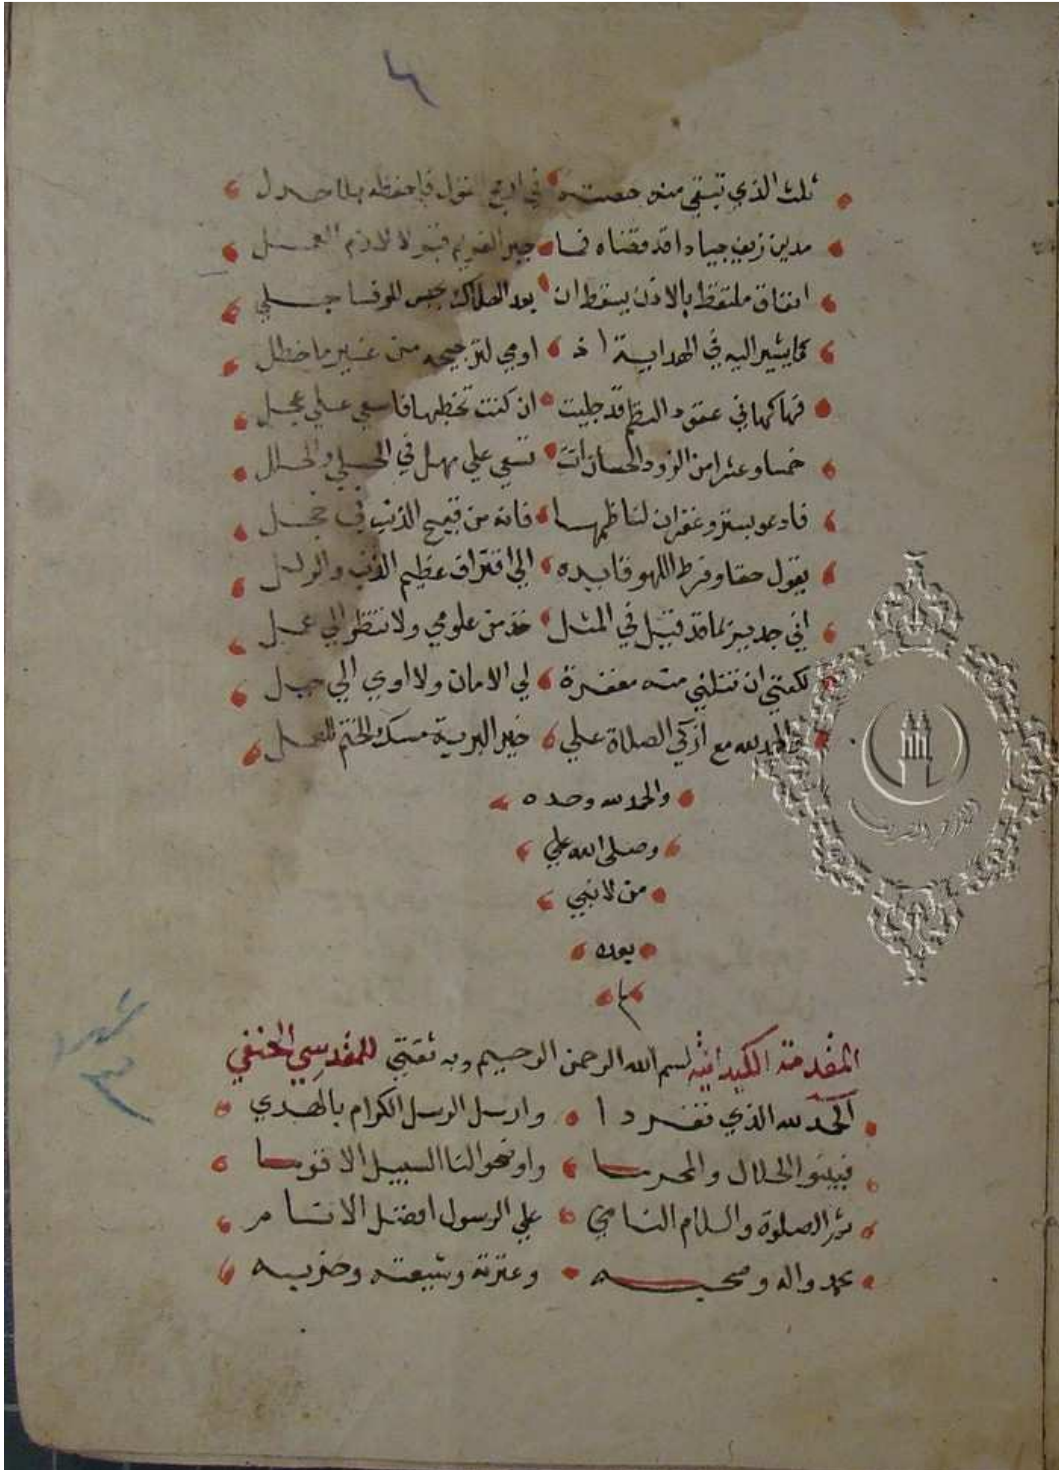 ٤
ثلث الذي تبقي منه حصته في الربح فاحفظه بلا جدل
مدين زيف جيادا قد قضاه فما جبر الغريم قبولا لازم العمل
انفاق ملتقط بالاذن يسقط ان بعد الهلاك حبس للوفا جلي
كما يشير اليه في الهداية اذ اومي لترجيحه من غير ما خطل
فهاكها في عقود النظم قد جليت ان كنت تخطبها فاسعي علي عجل
خمسا وعشرا من الرود الحسان اتت تسعي علي مهل في الحلي والحلل
فادعو بستر وغفران لناظمها فانه من قبيح الذنب في خجل
يقول حقا وفرط اللهو قايده الي اقتراف عظيم الذنب والزلل
اني جدير بما قد قيل في المثل خذ من علومي ولا تنظر الي عمل
لكنني ان تنلني منه مغفرة لي الامان ولا اوي الي جبل
والحمد لله مع ازكي الصلاة علي خير البرية مسك الختم للعمل
والحمد لله وحده
وصلي الله علي
من لا نبي
بعده
المقدمة الكيدانية بسم الله الرحمن الرحيم وبه ثقتي للمقدسي الحنفي
الحمد لله الذي تفردا وارسل الرسل الكرام بالهدي
فبينو الحلال والمحرما واوضحوا لنا السبيل الاقوما
ثم الصلوة والسلام النامي علي الرسول افضل الانام
محمد واله وصحبه وعترته وشيعته وحزبه